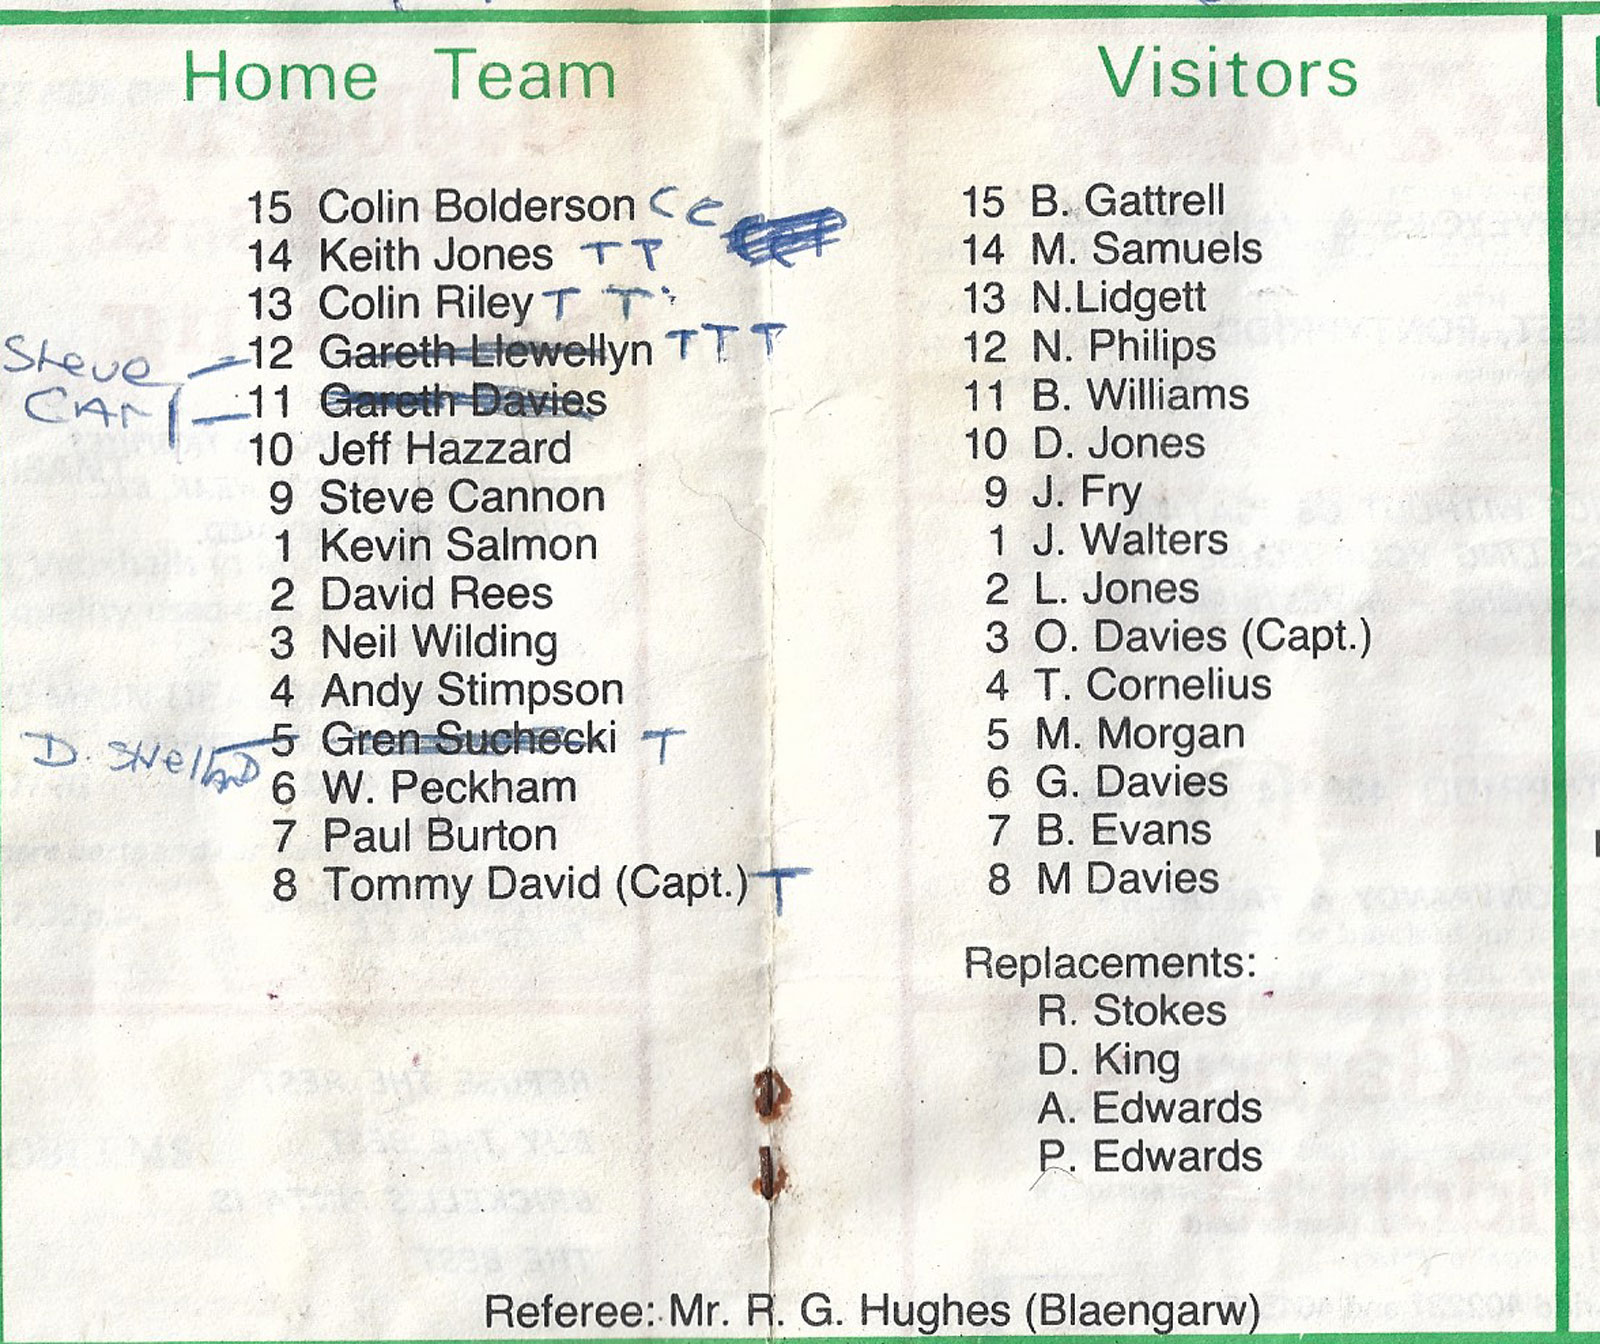 Home Team
15 Colin Bolderson C C
14 Keith Jones T T
13 Colin Riley T T
Steve 12 Gareth Llewellyn T T T
CARL 11 Gareth Davies
10 Jeff Hazzard
9 Steve Cannon
1 Kevin Salmon
2 David Rees
3 Neil Wilding
4 Andy Stimpson
D. 5 Gren Suchecki T
6 W. Peckham
7 Paul Burton
8 Tommy David (Capt.) T
Visitors
15 B. Gattrell
14 M. Samuels
13 N.Lidgett
12 N. Philips
11 B. Williams
10 D. Jones
9 J. Fry
1 J. Walters
2 L. Jones
3 O. Davies (Capt.)
4 T. Cornelius
5 M. Morgan
6 G. Davies
7 B. Evans
8 M Davies
Replacements:
R. Stokes
D. King
A. Edwards
P. Edwards
Referee: Mr. R. G. Hughes (Blaengarw)